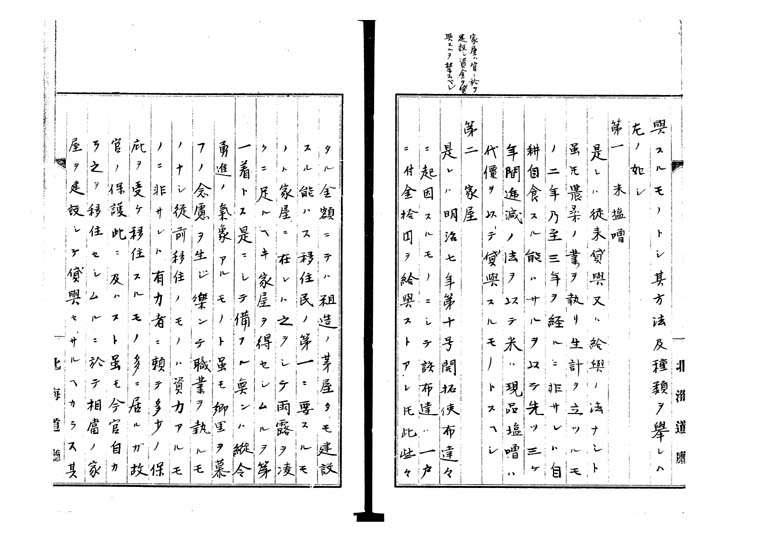 家屋ハ官ニ於テ
建設シ資金ヲ貸
與スルヲ禁スヘシ
與スルモノトシ其方法及種類ヲ擧レハ
左ノ如シ
第一 米塩噌
是レハ従来貸與又ハ給與ノ法ナシト
雖モ農桑ノ業ヲ執リ生計ヲ立ツルモ
ノ二年乃至三年ヲ經ルニ非サレハ自
耕自食スル能ハサルヲ以テ先ツ三ケ
年間逓減ノ法ヲ以テ米ハ現品塩噌ハ
代價ヲ以テ貸與スルモノトスヘシ
第二 家屋
是レハ明治七年第十号開拓使布達々
ニ起因スルモノニシテ該布達ハ一戸
ニ付金拾円ヲ給與ストアレ𪜈此些々
北海道廳
タル金額ニテハ粗造ノ茅屋タモ建設
スル能ハス移住民ノ第一ニ要スルモ
ノハ家屋ニ在レハ之ヲシテ雨露ヲ凌
クニ足ルヘキ家屋ヲ得セシムルヲ第
一着トス是ニシテ備フル無ンハ縱令
勇進ノ氣象アルモノト雖モ郷里ヲ慕
フノ念慮ヲ生シ樂ンテ職業ヲ執ルモ
ノナシ従前移住ノモノハ資力アルモ
ノニ非サレハ有力者ニ頼テ多少ノ保
庇ヲ受ケ移住スルモノ多ニ居ルガ故
官ノ保護此ニ及ハスト雖モ今官自カ
ラ之ヲ移住セシムルニ於テ相當ノ家
屋ヲ建設シテ貸與セサルヘカラス其
北海道廳